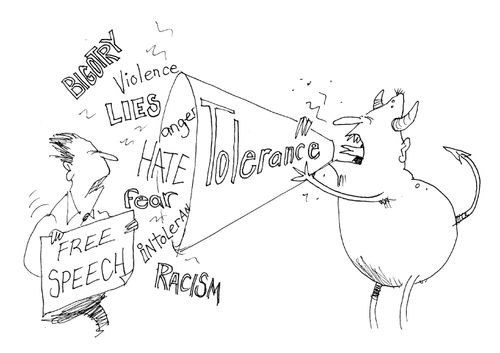 BIGOTRY
Violence
LIES
anger
HATE
Fear
iNTOLERAN
RACISM
TOlerance
FREE
SPEECH